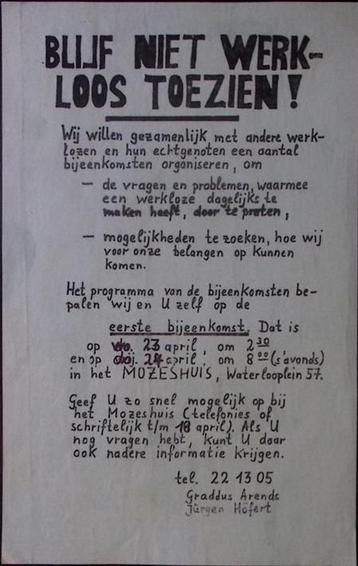 BLIJF NIET WERK-
LOOS TOEZIEN!
Wij willen gezamenlijk met andere werk-
lozen en hun echtgenoten een aantal
bijeenkomsten organiseren, om
– de vragen en problemen, waarmee
een werkloze dagelijks te
maken heeft, door te praten,
– mogelijkheden te zoeken, hoe wij
voor onze belangen op kunnen
komen.
Het programma van de bijeenkomsten be-
palen wij en U zelf op de
eerste bijeenkomst. Dat is
op do. 23 april, om 2³⁰
en op 24 april, om 8⁰⁰ (s'avonds)
in het MOZESHUIS, Waterlooplein 57.
Geef U zo snel mogelijk op bij
het Mozeshuis (telefonies of
schriftelijk t/m 18 april). Als U
nog vragen hebt, kunt U daar
ook nadere informatie krijgen.
tel. 22 13 05
Graddus Arends
Jürgen Höfert